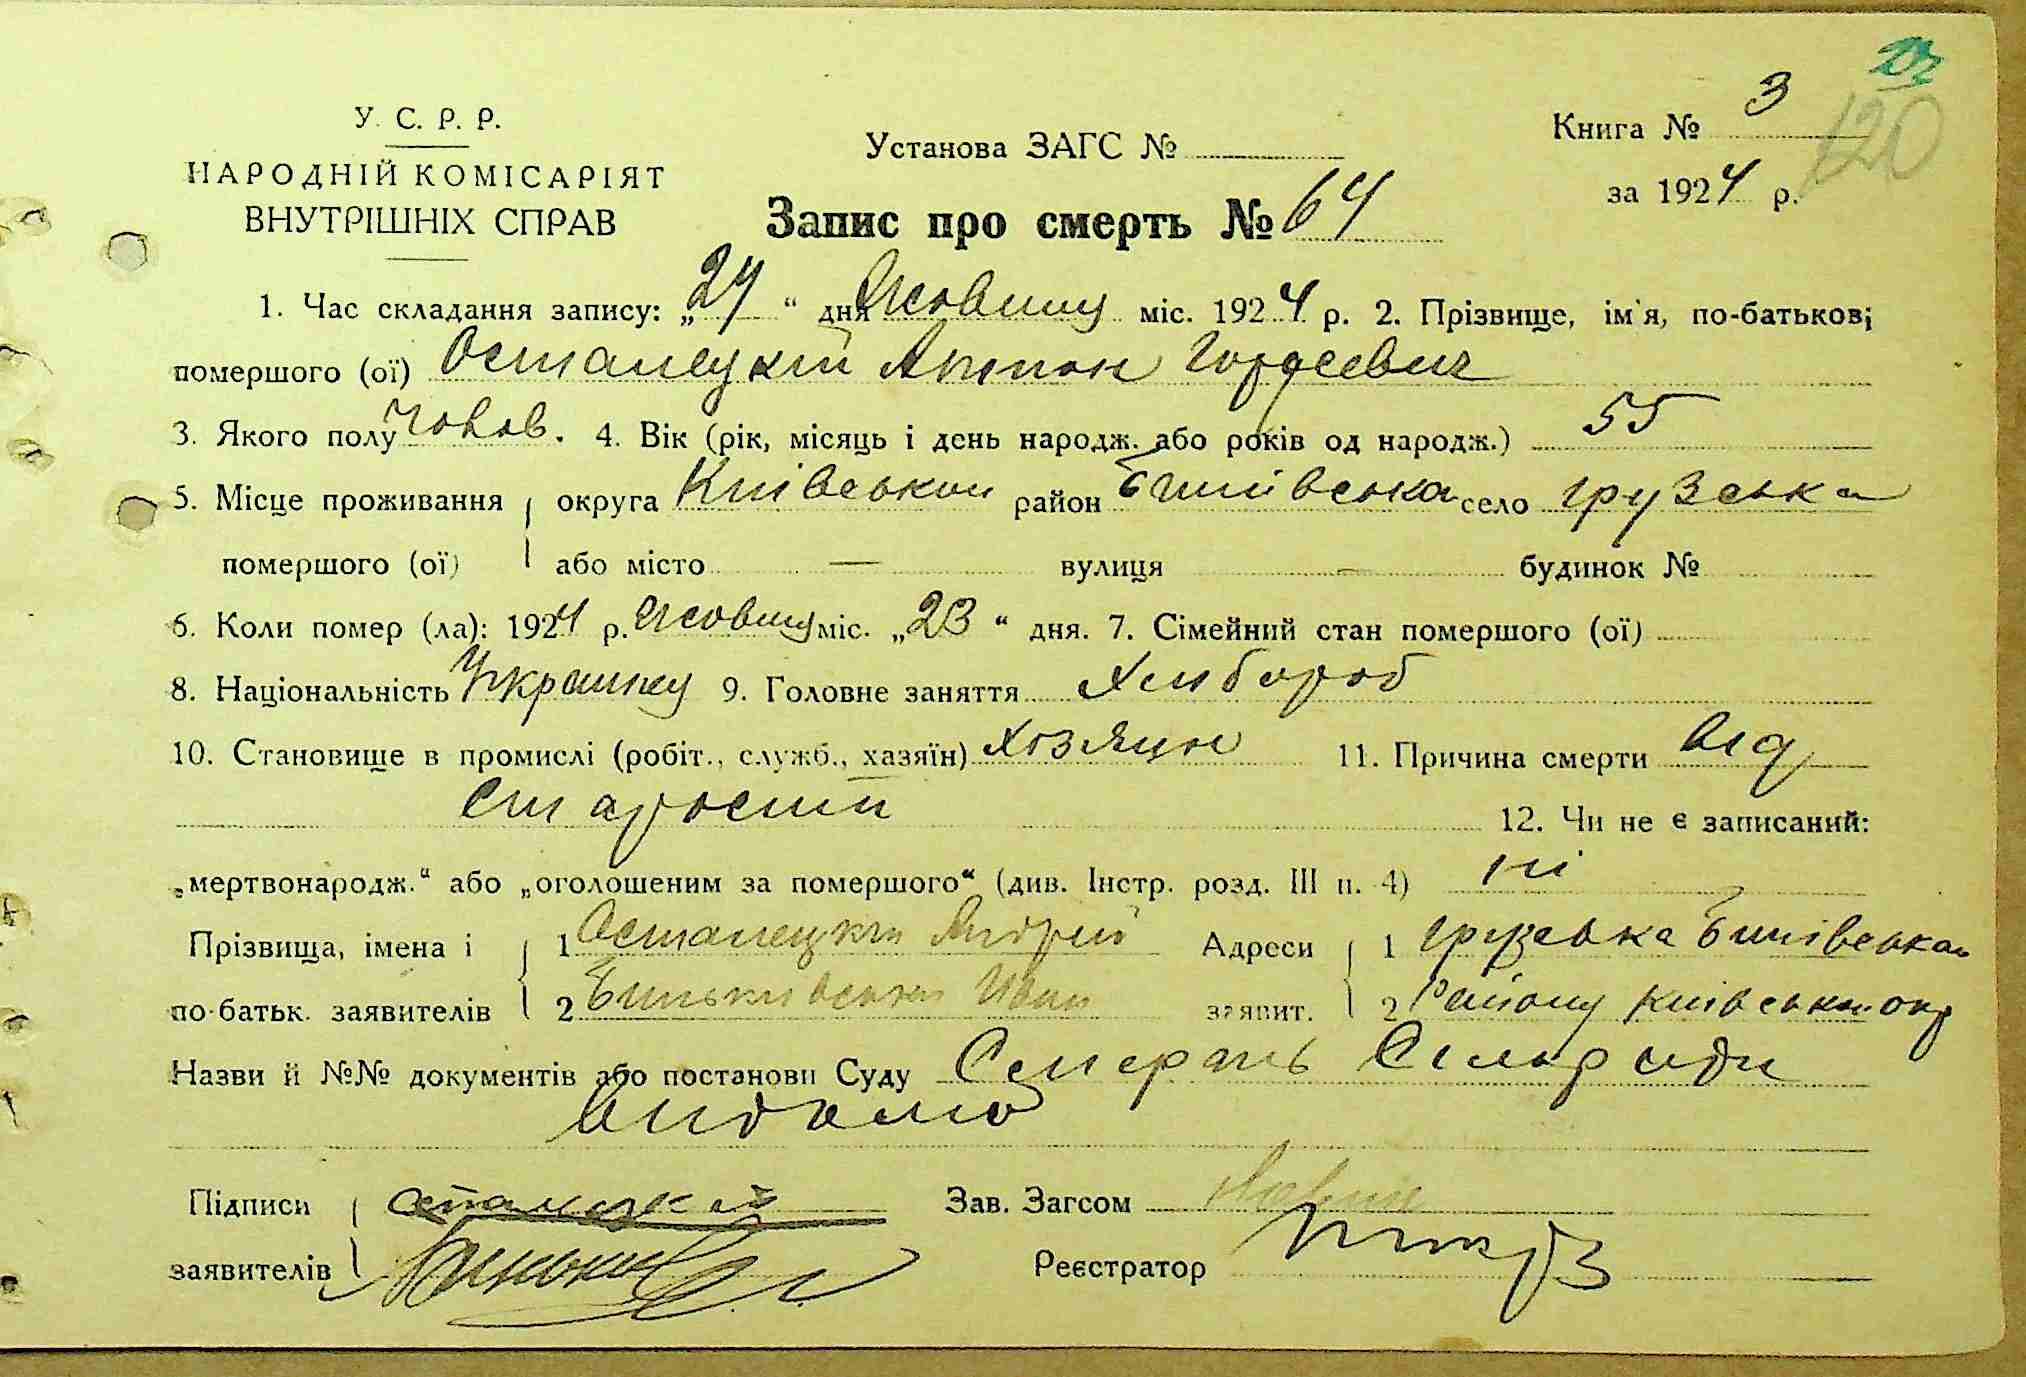 У. С. Р. Р.
НАРОДНІЙ КОМІСАРІЯТ
ВНУТРІШНІХ СПРАВ
Установа ЗАГС №
Запис про смерть № 64
Книга № 3
120
за 1924 р.
1. Час складання запису: „24“ дня Жовтню міс. 1924 р. 2. Прізвище, ім'я, по-батькові
помершого (ої) Остапецкий Антон Гордеевич
3. Якого полу Чолов. 4. Вік (рік, місяць і день народж. або років од народж.) 55
5. Місце проживання округа Київськои район Бишівська село Грузська
помершого (ої) або місто — вулиця — будинок №
6. Коли помер (ла): 1924 р. Жовтню міс. „23“ дня. 7. Сімейний стан помершого (ої)
8. Національність 9. Головне заняття Хлибороб
10. Становище в промислі (робіт., служб., хазяїн) Хозяин 11. Причина смерти Від
старости
12. Чи не є записаний:
„мертвонародж.“ або „оголошеним за помершого“ (див. Інстр. розд. III п. 4) ні
Прізвища, імена і 1 Остапецкий Андрій Адреси 1 Грузська Бишівськаго
по-батьк. заявителів 2 Иван заявит. 2 Району Київськои окр
Назви й №№ документів або постанови Суду Смерть Сільради
видомо
Підписи
заявителів
Зав. Загсом
Реєстратор